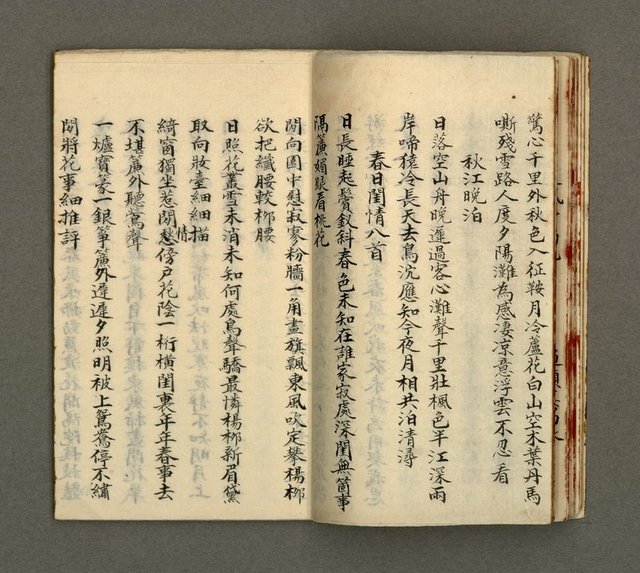 驚心千里外秋色入征鞍月冷蘆花白山空木葉丹馬
嘶殘雪路人度夕陽灘為感凄凉意浮雲不忍看
秋江晚泊
日落空山舟晚遲過客心灘聲千里壯楓色半江深雨
岸啼猿冷長天去鳥沈應知今夜月相共泊清潯
春日閨情八首
日長睡起鬢釵斜春色未知在誰家寂處深閨無箇事
隔簾媚眼看桃花
閒向園中慰寂寥粉牆一角畫旗飄東風吹定攀楊柳
欲把纖腰較柳腰
日照花叢雪未消未知何處鳥聲驕最憐楊柳新眉黛
取向妝臺細細描
綺窗獨坐惹閒愁情傍戶花陰一桁橫閨裏年年春事去
不堪簾外聽鶯聲
一爐寶篆一銀箏簾外遲遲夕照明被上鴛鴦停不繡
閒將花事細推評